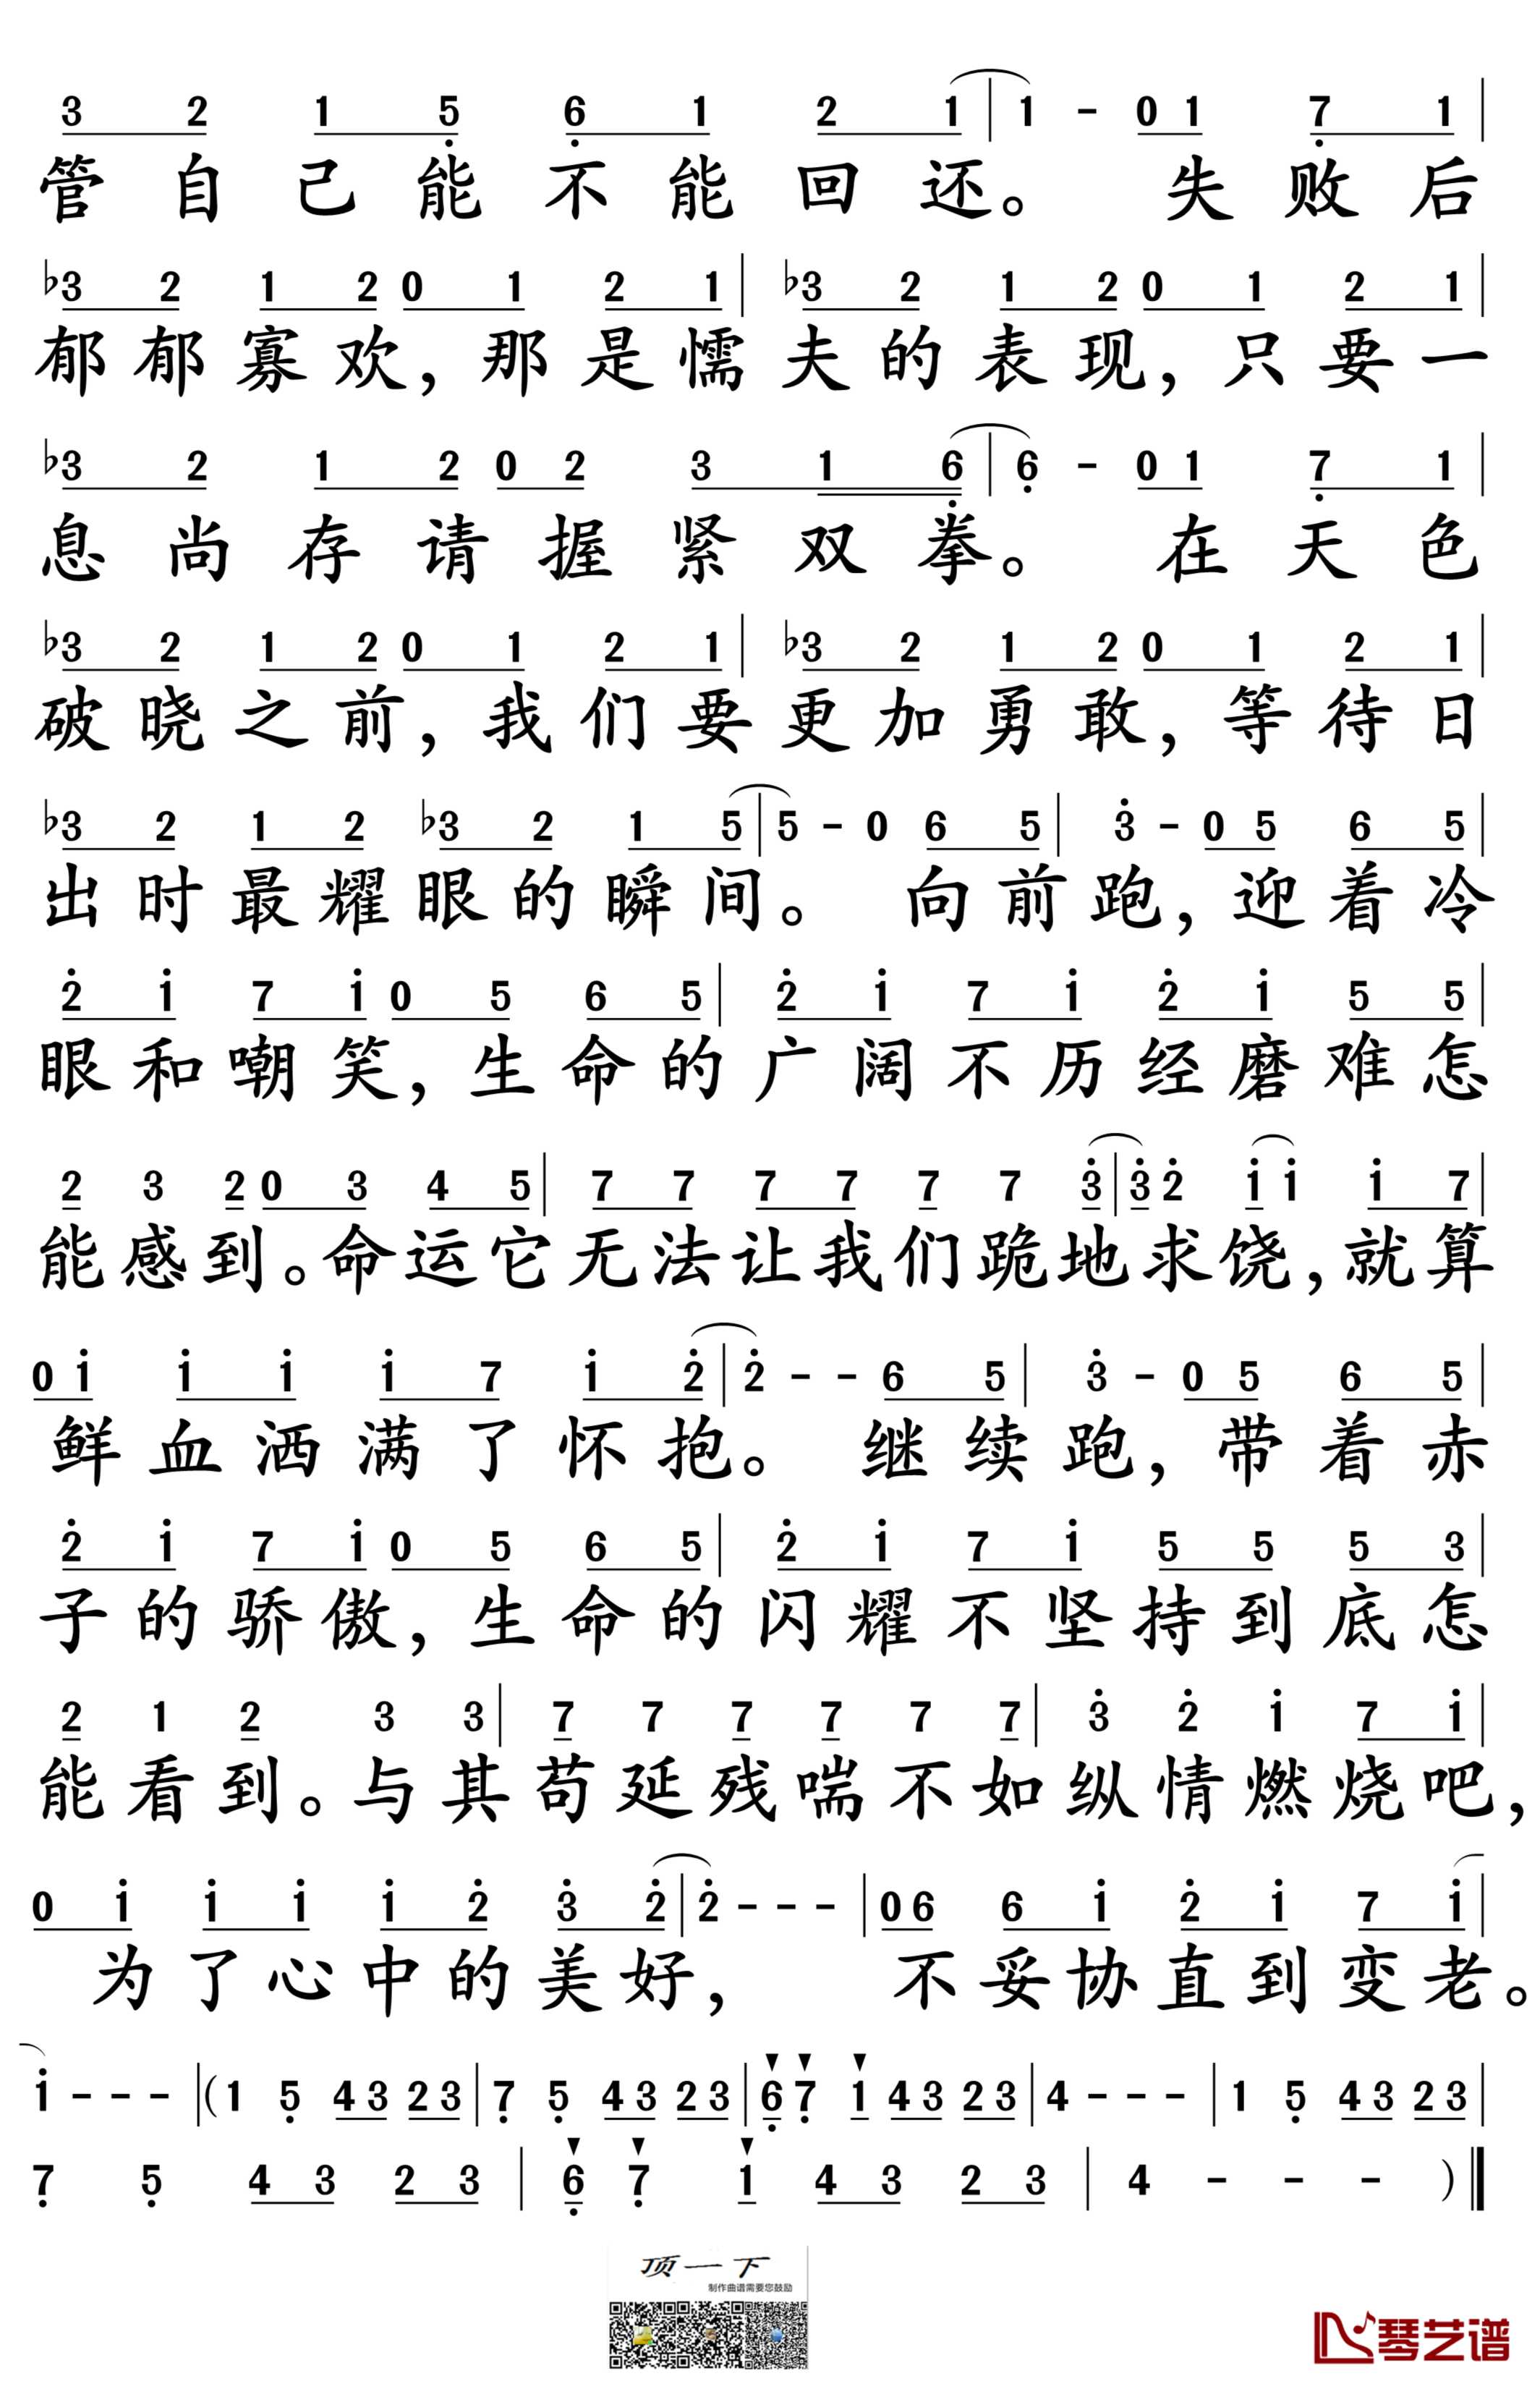 3 2 1 5 6 1 2 1 | 1 - 0 1 7 1 |
管自己能不能回还。 失败后
♭3 2 1 2 0 1 2 1 | ♭3 2 1 2 0 1 2 1 |
郁郁寡欢，那是懦夫的表现，只要一
♭3 2 1 2 0 2 3 1 6 | 6 - 0 1 7 1 |
息尚存请握紧双拳。 在天色
♭3 2 1 2 0 1 2 1 | ♭3 2 1 2 0 1 2 1 |
破晓之前，我们要更加勇敢，等待日
♭3 2 1 2 ♭3 2 1 5 | 5 - 0 6 5 | 3 - 0 5 6 5 |
出时最耀眼的瞬间。 向前跑，迎着冷
2 1 7 1 0 5 6 5 | 2 1 7 1 2 1 5 5 |
眼和嘲笑，生命的广阔不历经磨难怎
2 3 2 0 3 4 5 | 7 7 7 7 7 7 3 | 3 2 1 1 1 7 |
能感到。命运它无法让我们跪地求饶，就算
0 1 1 1 1 7 1 2 | 2 - - 6 5 | 3 - 0 5 6 5 |
鲜血洒满了怀抱。 继续跑，带着赤
2 1 7 1 0 5 6 5 | 2 1 7 1 5 5 5 3 |
子的骄傲，生命的闪耀不坚持到底怎
2 1 2 3 3 | 7 7 7 7 7 7 | 3 2 1 7 1 |
能看到。与其苟延残喘不如纵情燃烧吧，
0 1 1 1 1 2 3 2 | 2 - - - | 0 6 6 1 2 1 7 1 |
为了心中的美好， 不妥协直到变老。
1 - - - | (1 5 4 3 2 3 | 7 5 4 3 2 3 | 6 7 1 4 3 2 3 | 4 - - - | 1 5 4 3 2 3 |
7 5 4 3 2 3 | 6 7 1 4 3 2 3 | 4 - - - ) ‖
顶一下
制作曲谱需要您鼓励
琴艺谱